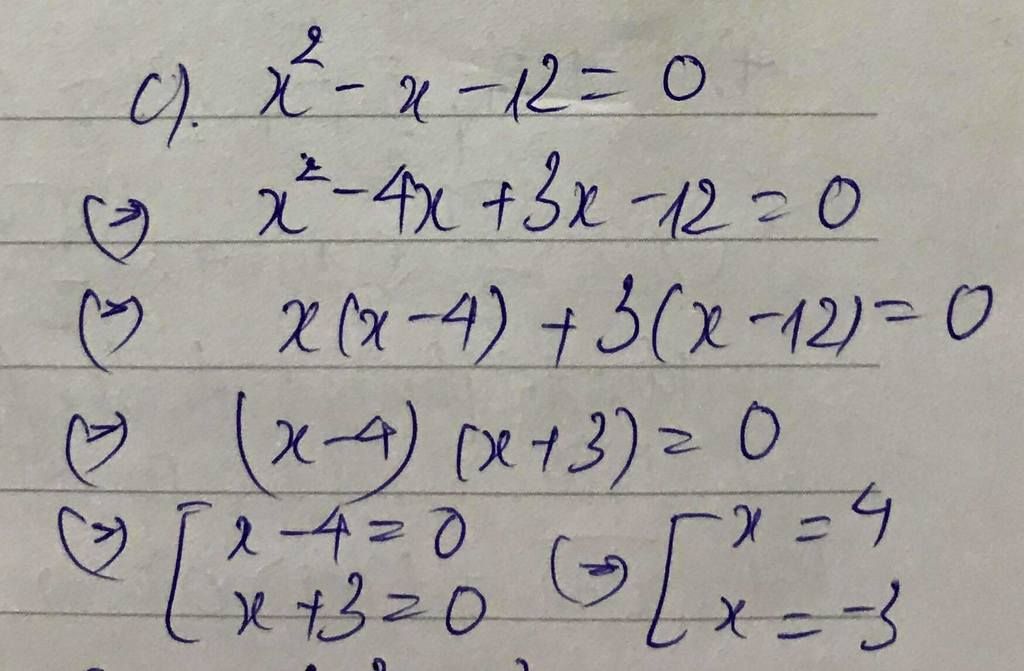 c). x² - x - 12 = 0
(=) x² - 4x + 3x - 12 = 0
(=) x(x - 4) + 3(x - 12) = 0
(=) (x - 4) (x + 3) = 0
(=) [ x - 4 = 0 (=) [ x = 4
x + 3 = 0 x = -3